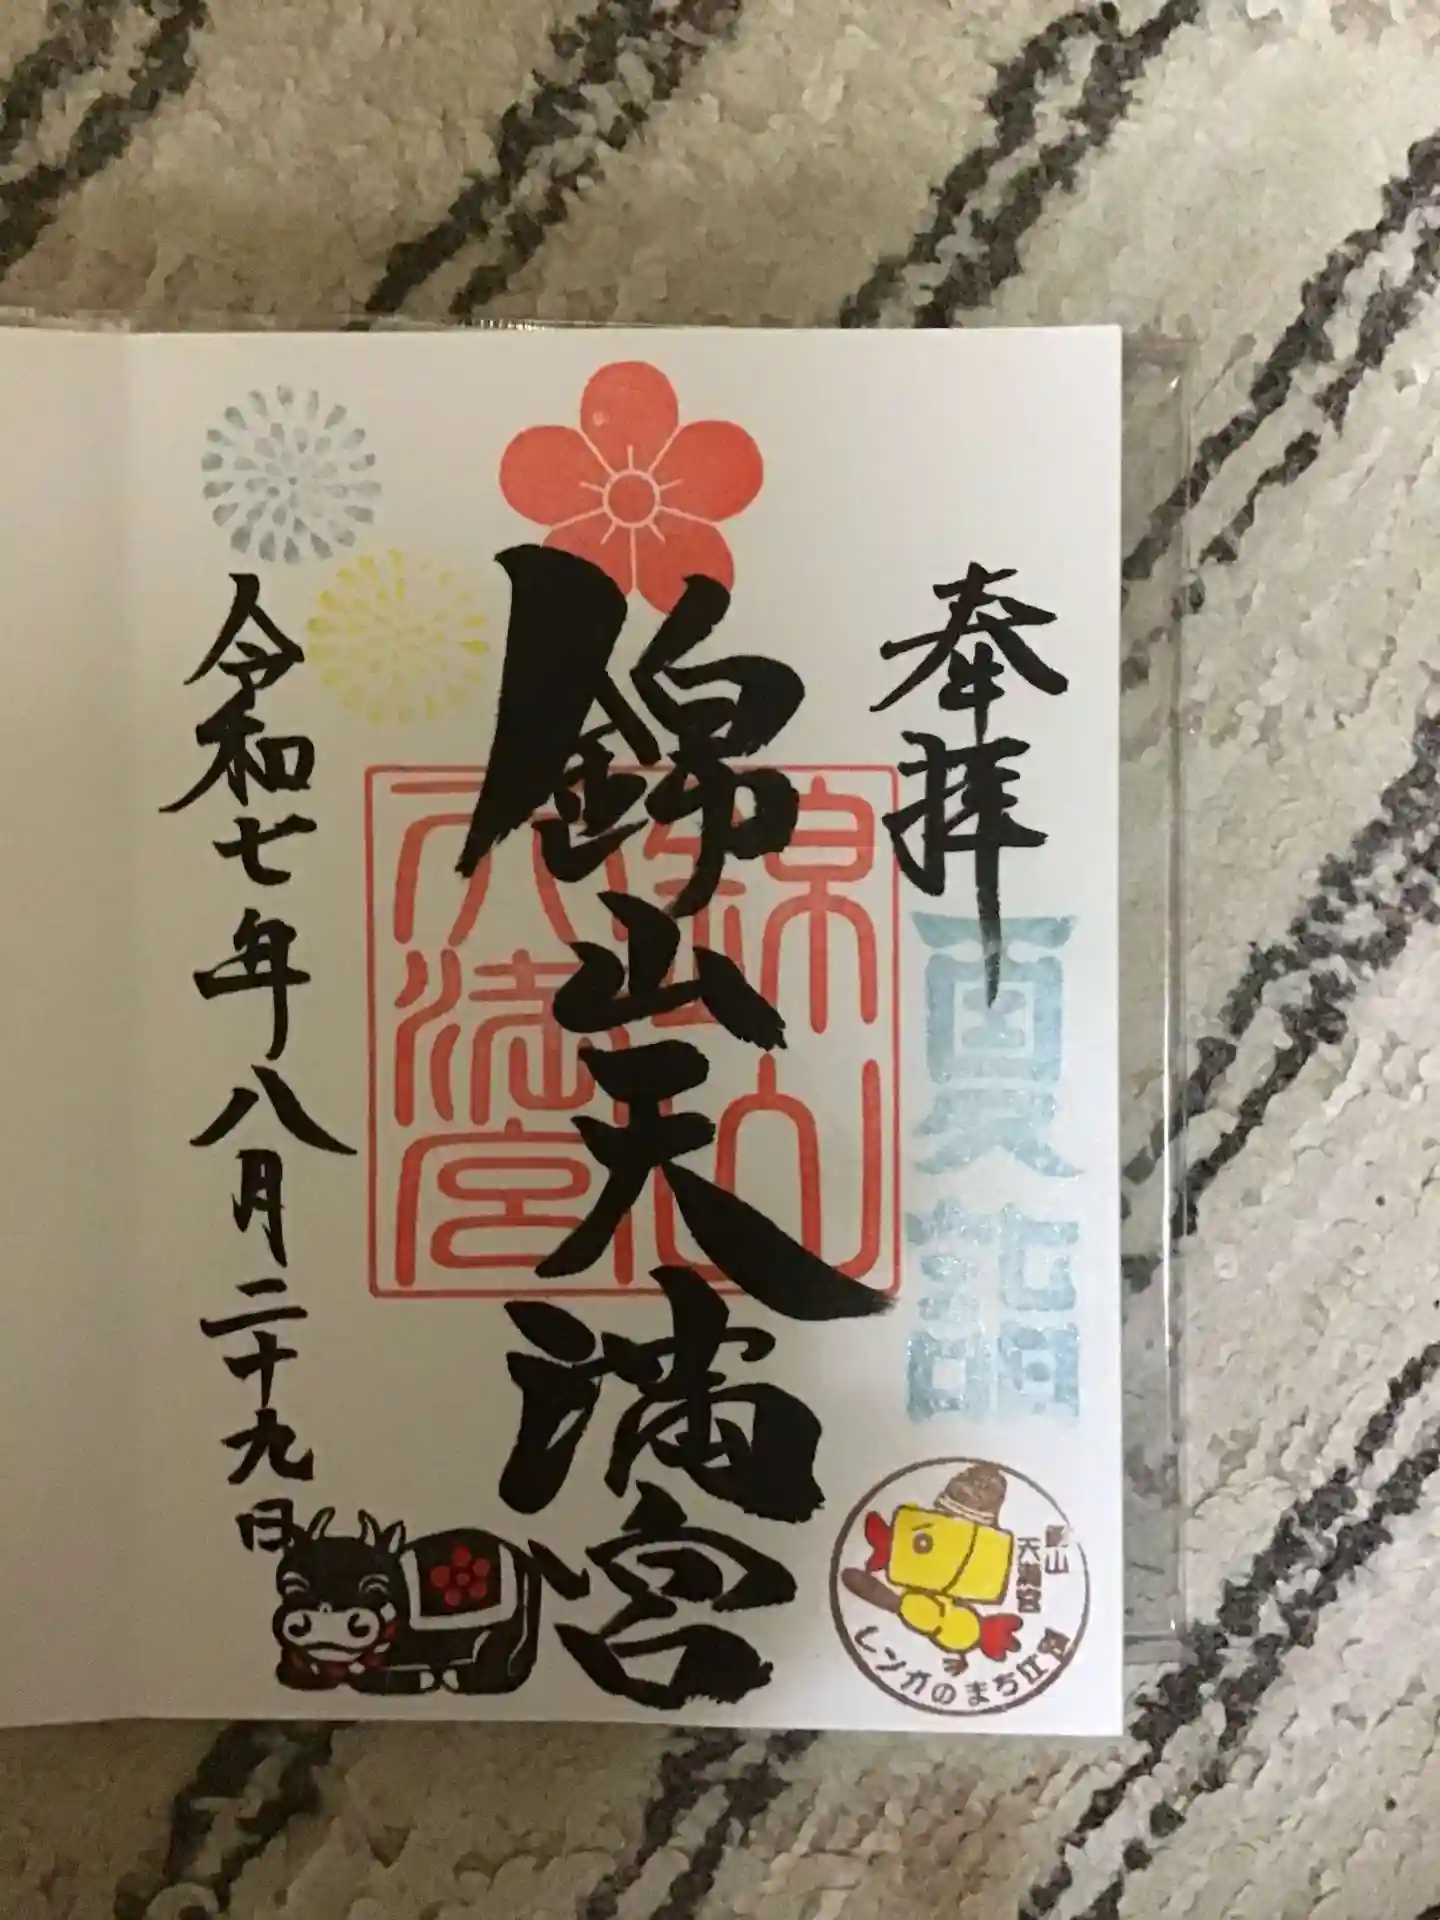 奉拝
夏詣
錦山天満宮
錦山
天満宮
令和七年八月二十九日
錦山
天満宮
レンガのまち江別